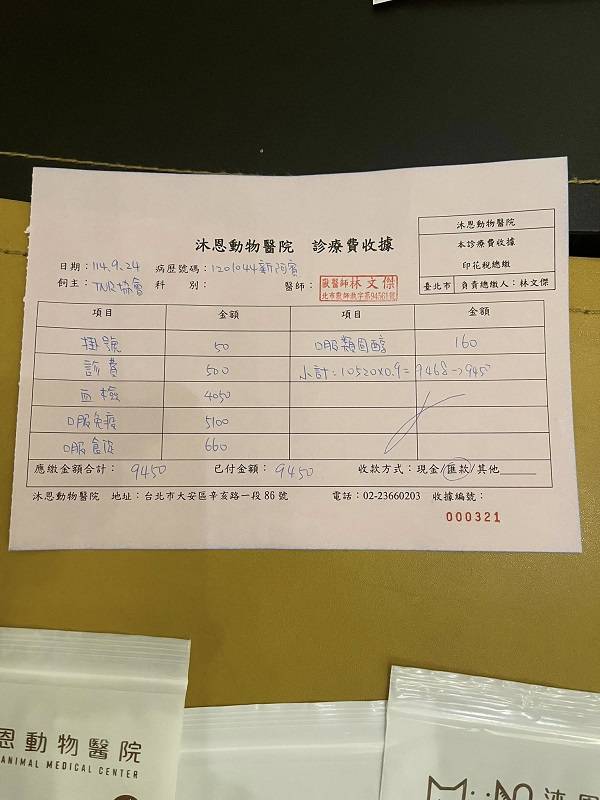 沐恩動物醫院 診療費收據
沐恩動物醫院
本診療費收據
印花稅總繳
臺北市 負責總繳人：林文傑
日期：114.9.24 病歷號碼：1201044新阿賓
飼主：TNR協會 科 別： 醫師：獸醫師林文傑
項目 金額 項目 金額
掛號 50 口服類固醇 160
診費 500 小計：10520x0.9=9468→9450
血檢 4050
口服免疫 5100
口服食促 660
應繳金額合計：9450 已付金額：9450 收款方式：現金/匯款/其他
沐恩動物醫院 地址：台北市大安區辛亥路一段86號 電話：02-23660203 收據編號：
000321
恩動物醫院
ANIMAL MEDICAL CENTER
沐恩